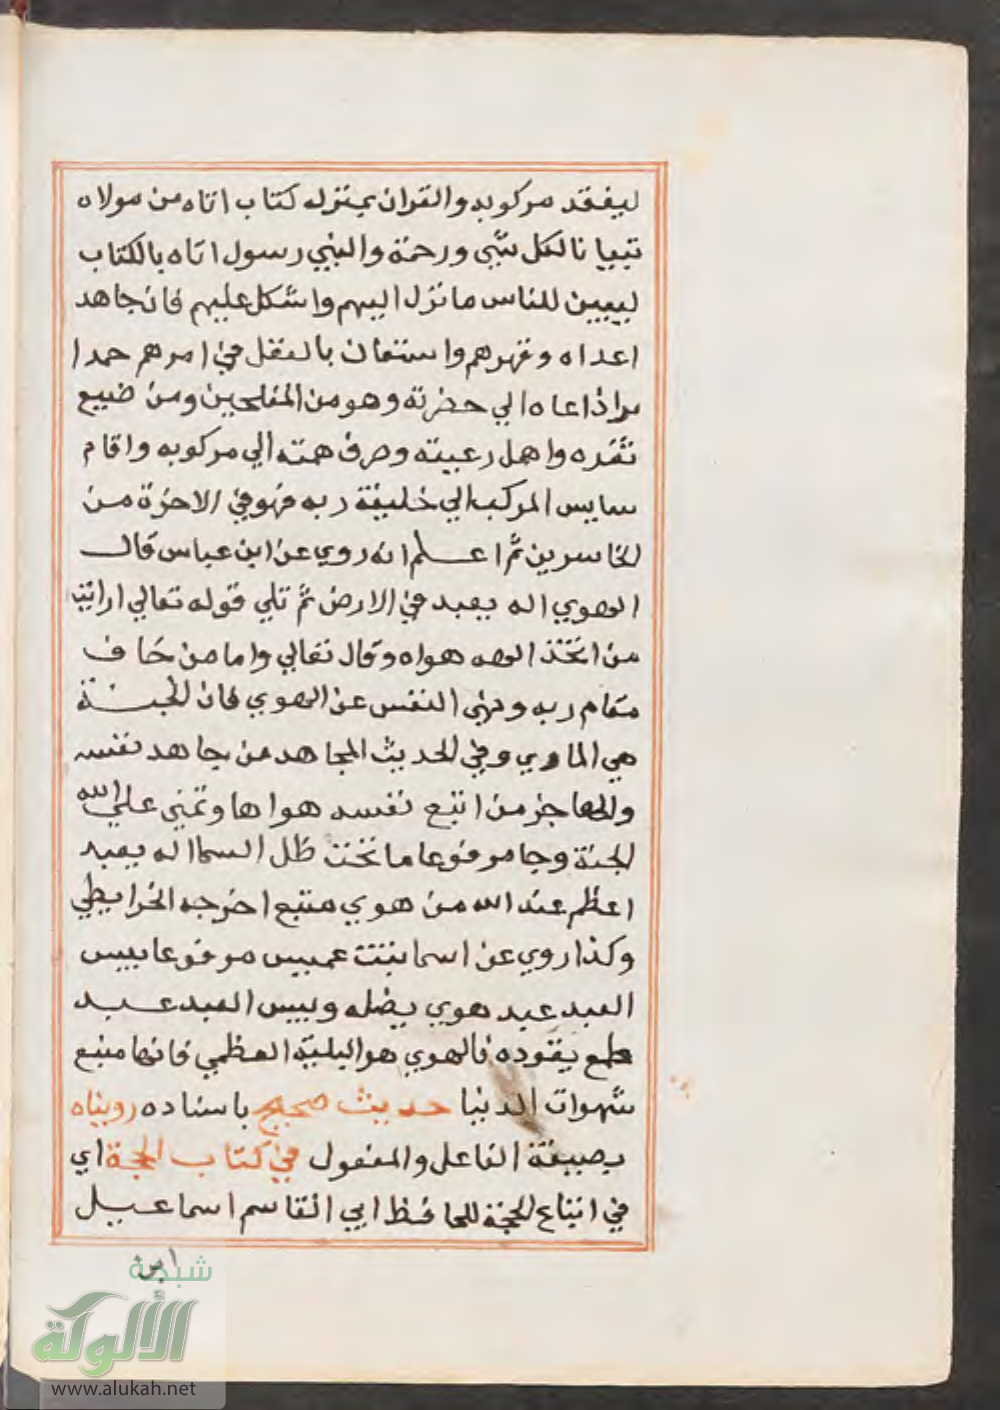 ليفقد مركوبه والقران بمنزله كتاب اتاه من مولاه
تبيانا لكل شي ورحمة والنبي رسول اتاه بالكتاب
ليبين للناس ما نزل اليهم واشكل عليهم فان جاهد
اعداه وقهرهم واستعان بالعقل في امرهم حمد ا
اذا عاد الي حضرته وهو من المفلحين ومن ضيع
ثغره واهمل رعيته وصرف همته الي مركوبه واقام
سايس المركب الي خليفة ربه فهو في الاخرة من
الخاسرين ثم اعلم انه روي عن ابن عباس قال
الهوي اله يعبد في الارض ثم تلي قوله تعالي ارايت
من اتخذ الهه هواه وقال تعالي واما من خاف
مقام ربه ونهى النفس عن الهوي فان الجنة
هي الماوي وفي الحديث المجاهد من جاهد نفسه
والعاجز من اتبع نفسه هواها وتمني علي الله
الجنة وجا مرفوعا ما تحت ظل السما اله يعبد
اعظم عند الله من هوي متبع اخرجه الخرايطي
وكذا روي عن اسما بنت عميس مرفوعا بيس
العبد عبد هوي يضله وبيس العبد عبد
طمع يقوده فالهوي هو البلية العظمي فانها منبع
شهوات الدنيا حديث صحيح باسناده رويناه
بصيغة الفاعل والمفعول في كتاب الحجة اي
في اتباع الحجة للحافظ ابي القاسم اسماعيل
ابن
شبكة
الألوكة
www.alukah.net